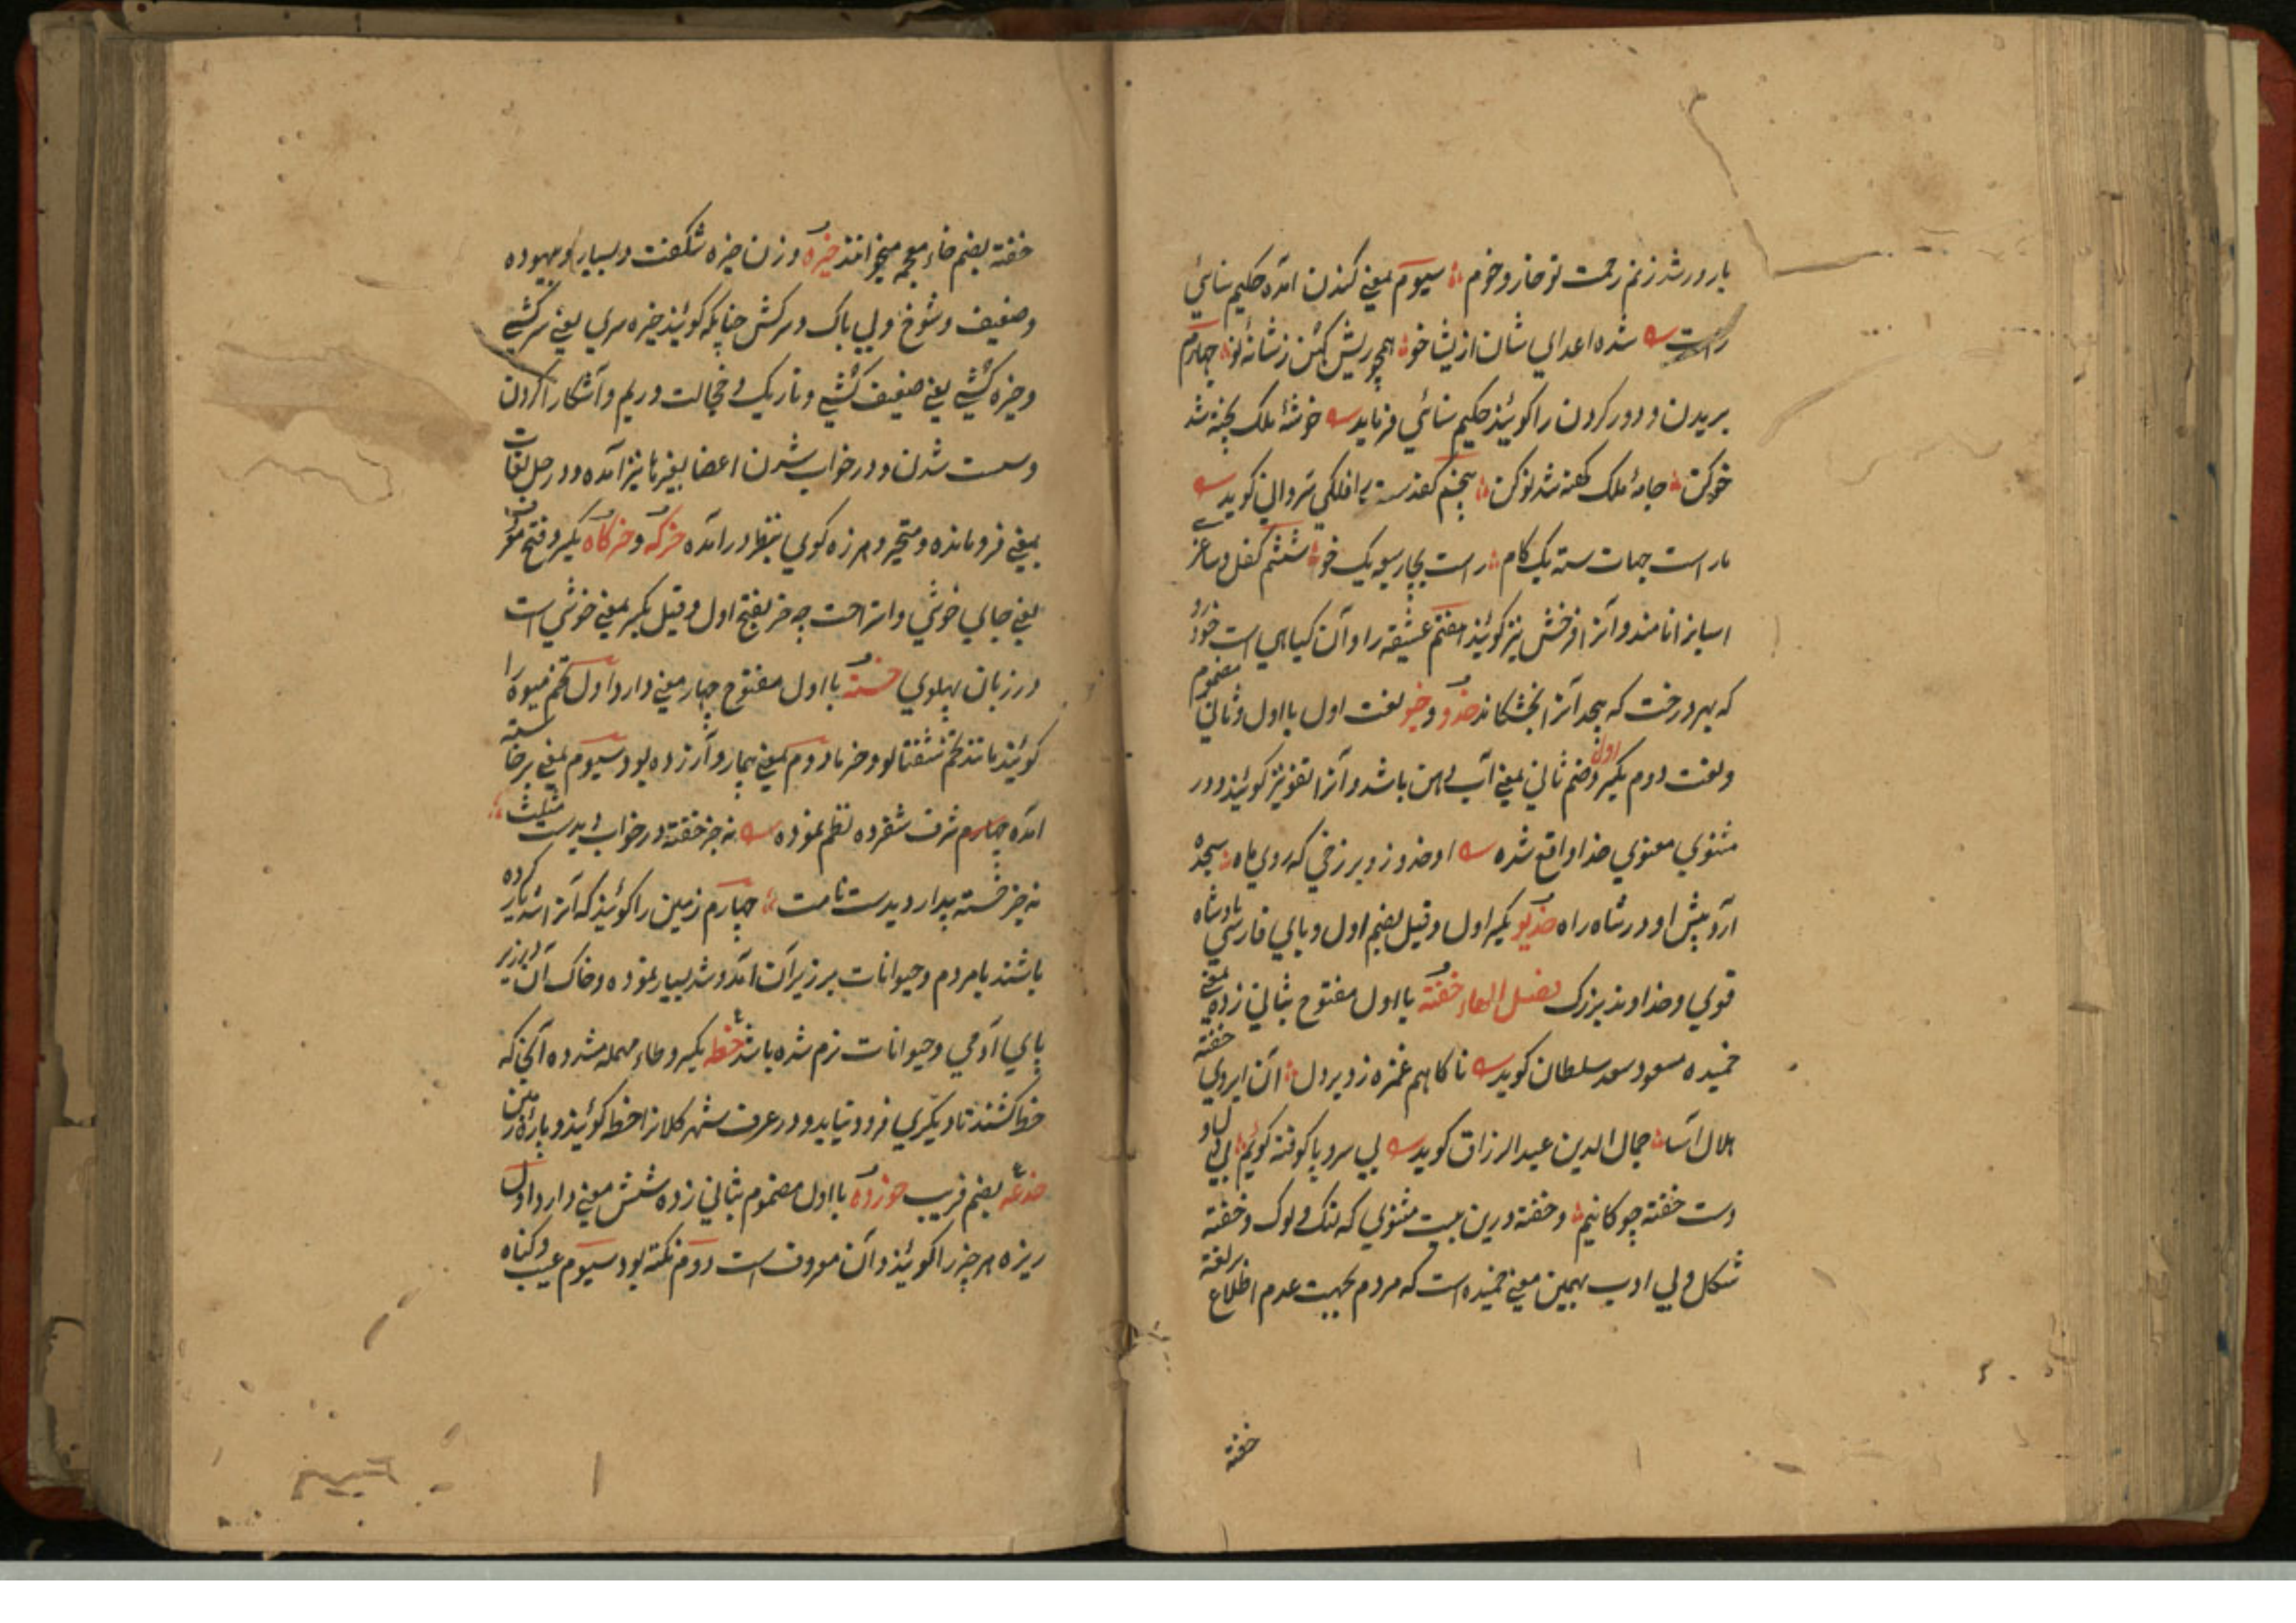 بارور شد ز نم رحمت تو خار و خوم سیوم بمعنی کندن آمده حکیم سنائی
راست شده اعدای شان از یشا خو همچو ریش کهن ز شانه نو چهارم
بریدن و دور کردن را کوئیند حکیم سنائی فرماید خوشهٔ ملک پخته شد
خو کن جامهٔ ملک کهنه شد نو کن پنجم فلکی شروانی کوید
راست جهات سته یک کام راست بچار سو یک خو ششم کفل و ساغر
اسپ انرا نامند و آنرا فرخش نیز کوئیند هفتم عشیقه را و آن کیاهی است خودرو
که بهر درخت که پیچد آنرا بخشکاند خدو و خیو لغت اول با اول و ثانی مضموم
و لغت دوم بکسر اول و ضم ثانی بمعنی آب دهن باشد و آنرا تفو نیز کوئیند و در
مثنوی معنوی خدا واقع شده او خدو زد بر رخی که روی ماه سجده
آرد پیش او در شاه راه خدیو بکسر اول و قیل بضم اول و بای فارسی پادشاه
قوی و خداوند بزرک فصل الهاء خفته با اول مفتوح بثانی زده بمعنی
خمیده مسعود سعد سلطان کوید ناکا هم غمزه زد بر دل آن ابروی خفته
هلال آسا جمال الدین عبد الرزاق کوید بی سر و پا کوفته کوئیم بی دل و
دست خفته چو کانیم و خفته درین بیت مثنوی که لنک و لوک و خفته
شکل و بی ادب بهمین معنی خمیده است که مردم بجهت عدم اطلاع بر لغة
خفته
خفته بضم خاء معجمه میخوانند خیره وزن چیره شکفت و بسیار و بیهوده
و ضعیف و شوخ و بی باک و سرکش چنانکه کوئیند خیره سری یعنی سرکشی
و خیره کشی یعنی ضعیف کشی و تاریک و خجالت و ریم و آشکارا کردن
و سست شدن و در خواب شدن اعضا بغیرها نیز آمده و در حل لغات
بمعنی فرومانده و متحیر و هرزه کوی بنظر در آمده خرکه و خرکاه بکسر و فتح
یعنی جای خوشی و استراحت چه خر بفتح اول و قیل بکسر بمعنی خوشی است
در زبان پهلوی خسته با اول مفتوح چهار معنی دارد اول تخم میوه را
کوئیند مانند تخم شفتالو و خرما دوم بمعنی بیمار و آزرده بود سیوم بمعنی برخاسته
آمده چهارم شرف شفروه نظم نموده نه جز خفته در خواب دیدست مثلت
نه جز خسته بیدار دیدست نامت چهارم زمینی را کوئیند که آنرا شدیار کرده
باشند یا مردم و حیوانات بر زبر آن آمد و شد بسیار نموده و خاک آن در زیر
پای آدمی و حیوانات نرم شده باشد خطه بکسر و طاء مهمله مشدده آنجا که
خط کشند تا دیکری فرود نیاید و در عرف شهر کلانرا خطه کوئیند و پارهٔ زمین
خدعه بضم فریب خورده با اول مضموم بثانی زده شش معنی دارد اول
ریزه هر چیز را کوئیند و آن معروف است دوم نکته بود سیوم عیب و کناه